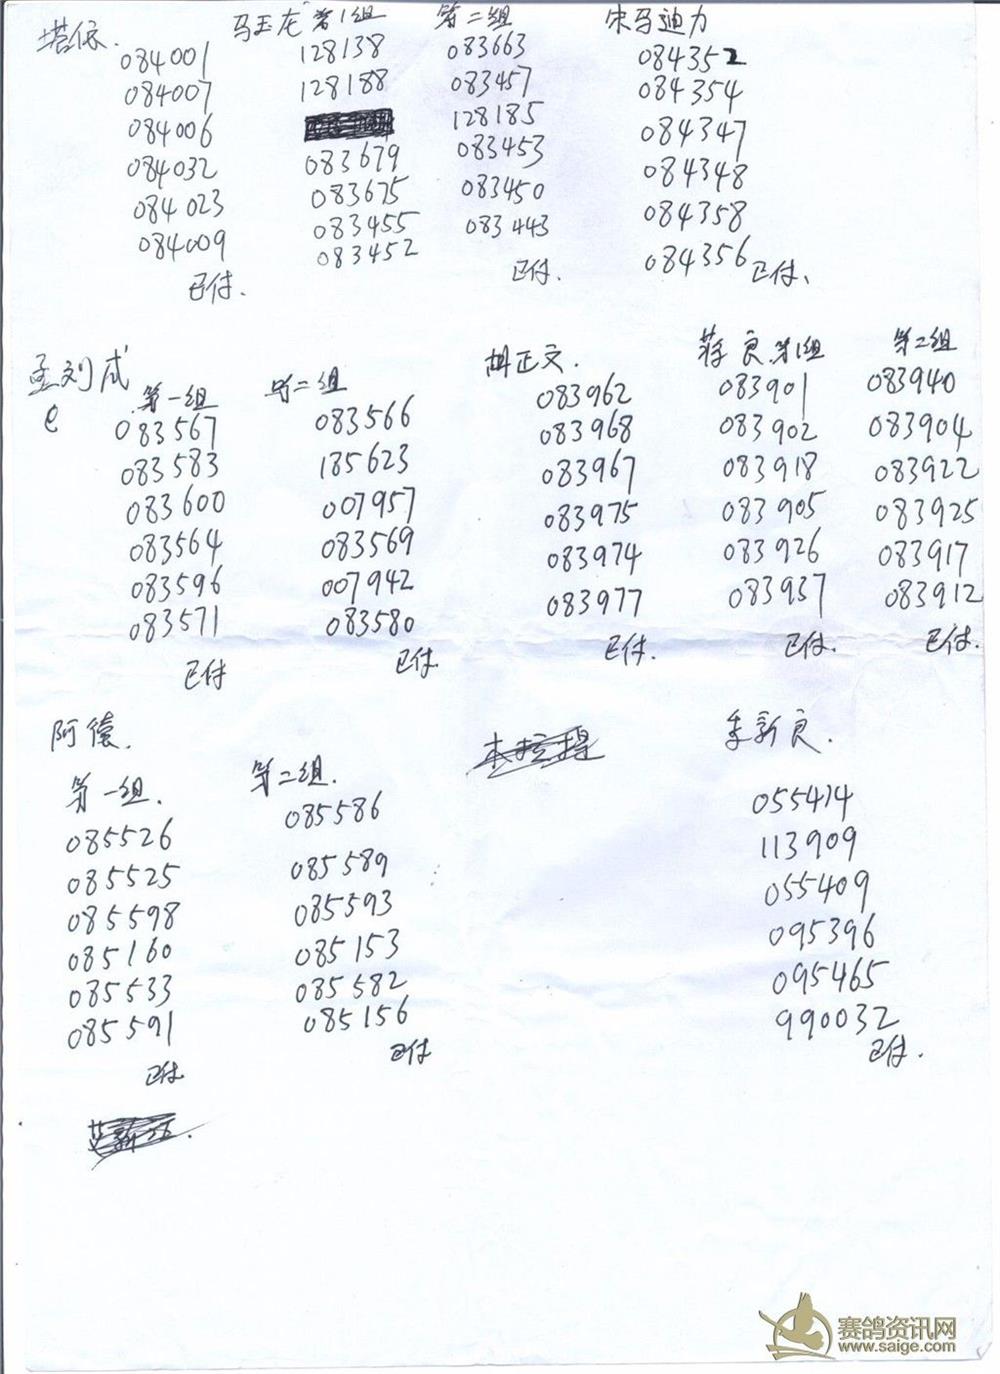 塔依.
084001
084007
084006
084032
084023
084009
已付.
马玉龙 第1组
128138
128188
083679
083675
083455
083452
第二组
083663
083457
128185
083453
083450
083443
已付.
宋马迪力
084352
084354
084347
084348
084358
084356
已付.
孟刘成
第一组
083567
083583
083600
083564
083596
083571
已付
第二组
083566
185623
007957
083569
007942
083580
已付.
胡正文.
083962
083968
083967
083975
083974
083977
已付.
蒋良 第1组
083901
083902
083918
083905
083926
083937
已付.
第二组
083940
083904
083922
083925
083917
083912
已付.
阿德.
第一组.
085526
085525
085598
085160
085533
085591
已付
第二组.
085586
085589
085593
085153
085582
085156
已付
李新良.
055414
113909
055409
095396
095465
990032
已付.
赛鸽资讯网
www.saige.com